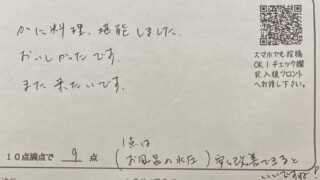 かに料理、堪能しました。
おいしかったです。
また来たいです。
スマホでも投稿
OK!チェック欄
記入後フロント
へお渡し下さい。
10点満点で 9 点
1点は
(お風呂の水圧)少し改善できると
いいですね!